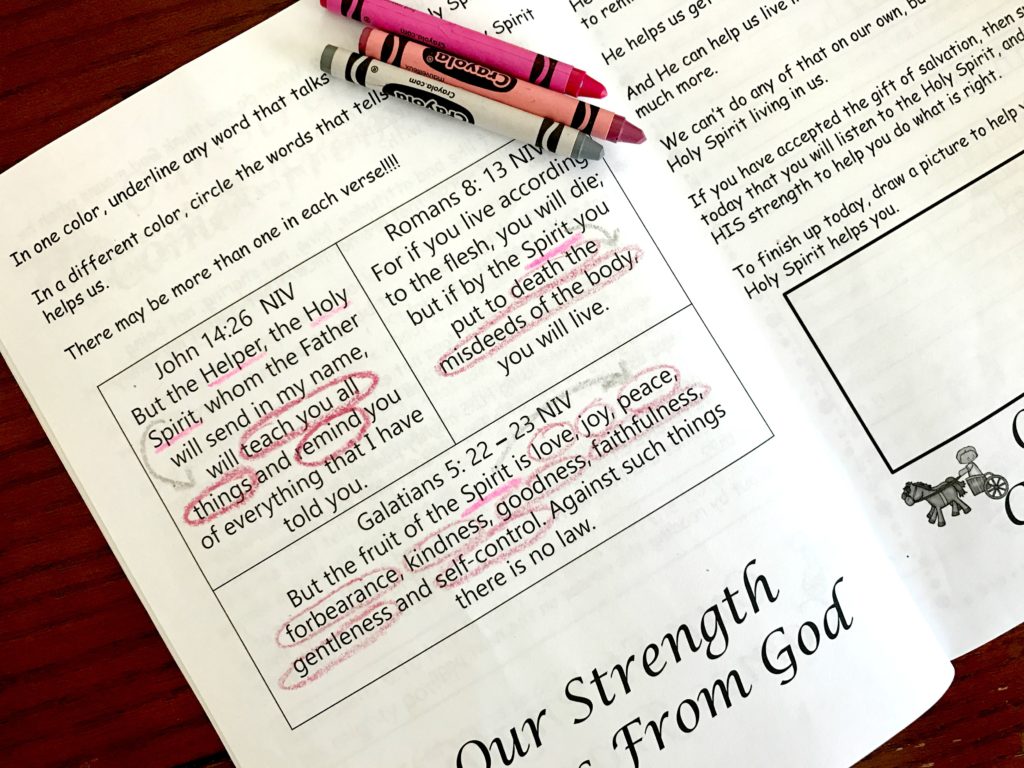 Holy Sp
Spirit
In one color, underline any word that talks
In a different color, circle the words that tells
helps us.
There may be more than one in each verse!!!!
John 14:26 NIV
But the Helper, the Holy
Spirit, whom the Father
will send in my name,
will teach you all
things and remind you
of everything that I have
told you.
Romans 8: 13 NIV
For if you live according
to the flesh, you will die;
but if by the Spirit you
put to death the
misdeeds of the body,
you will live.
Galatians 5: 22 – 23 NIV
But the fruit of the Spirit is love, joy, peace,
forbearance, kindness, goodness, faithfulness,
gentleness and self-control. Against such things
there is no law.
Our Strength
From God
Crayola
Crayola.com
Crayola
mauvelous
Crayola
Crayola.com
He
to remi
He helps us get
And He can help us live i
much more.
We can't do any of that on our own, bu
Holy Spirit living in us.
If you have accepted the gift of salvation, then s
today that you will listen to the Holy Spirit, and
HIS strength to help you do what is right.
To finish up today, draw a picture to help y
Holy Spirit helps you.